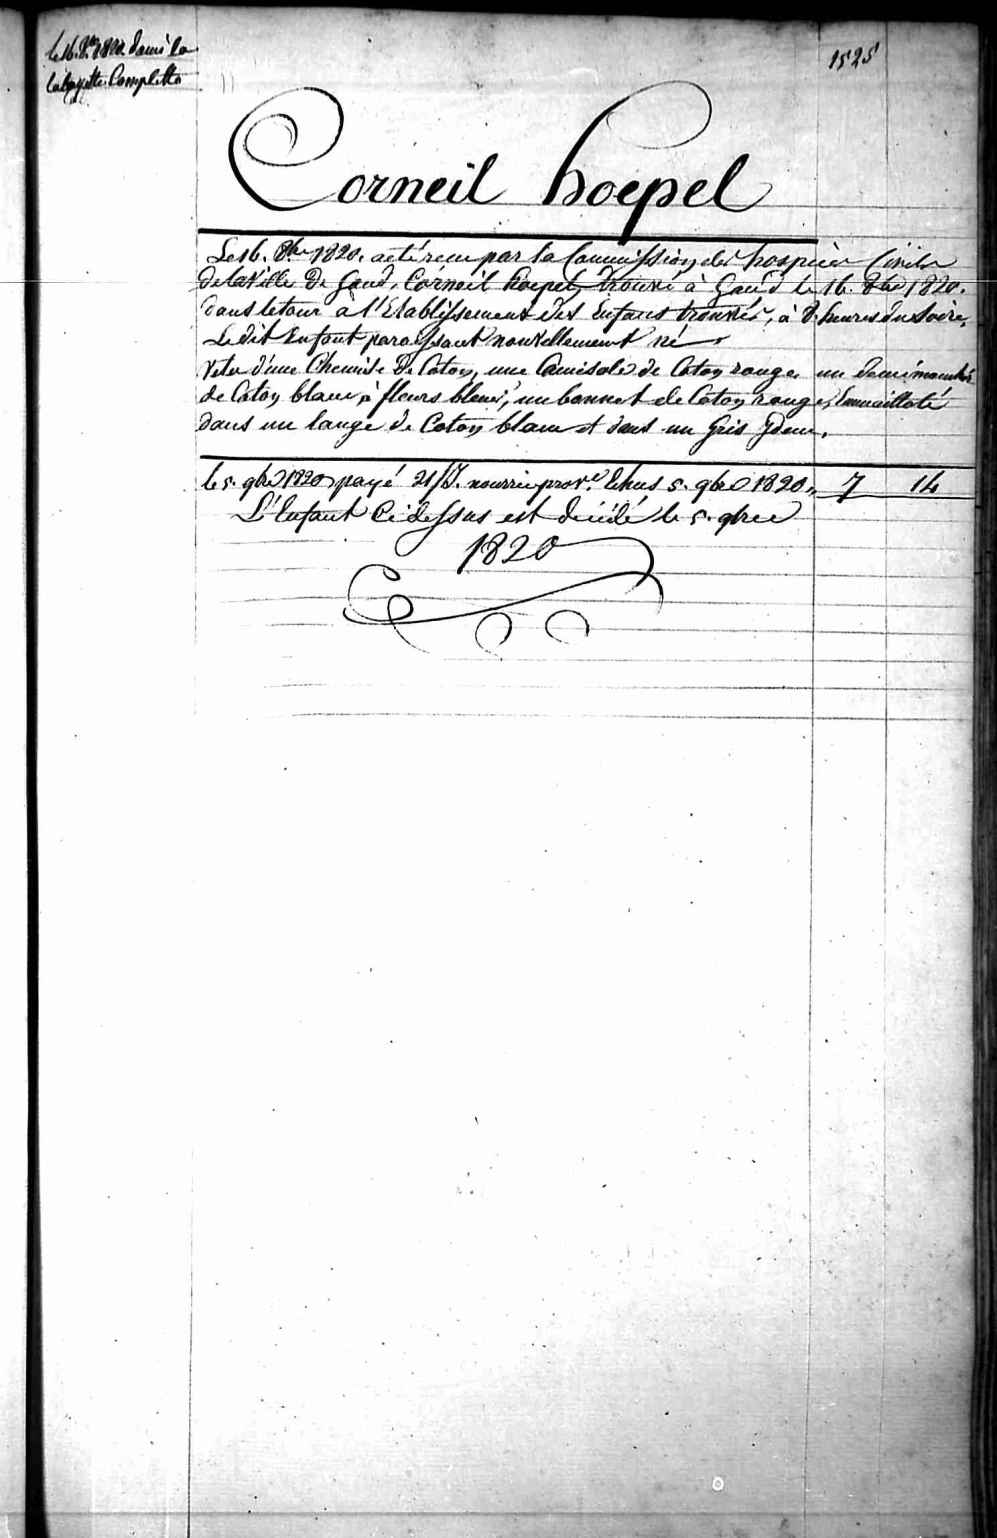 le 16. 8bre 1820 donné la
layette Complette
1525
Corneil hoepel
Le 16. 8bre 1820. a été recu par la Commission des hospices Civils
de la Ville De Gand, Corneil hoepel, trouvé à Gand le 16. 8bre 1820.
dans le tour à l'Etablissement des Enfans trouvés, à 8. heures du Soire,
Le dit Enfant paraissant nouvellement né
Vetu d'une Chemise De Coton, une Camisole de Coton rouge, un demi mouchoir
de Coton blanc à fleurs bleues, un bonnet de Coton rouge, Emmailloté
dans un lange de Coton blanc et dans un Gris Idem.
le 5. 9bre 1820 payé 21/J. nourrie prov.e Echus 5. 9bre 1820 „ 7 14
L'Enfant Ci dessus est décédé le 5. 9bre
1820